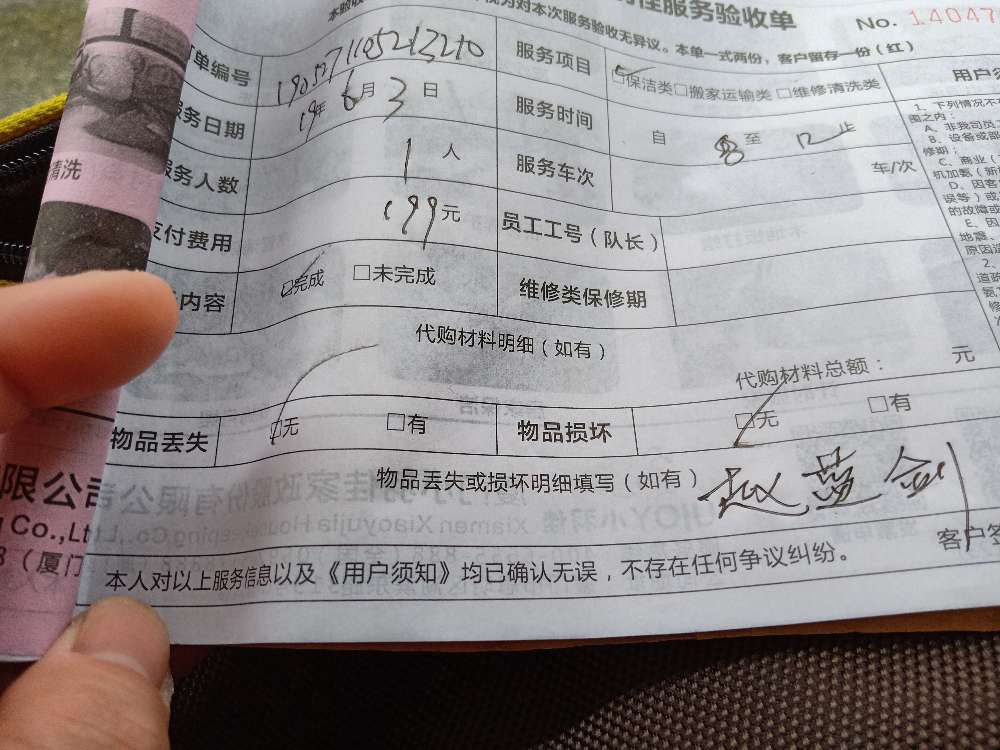 佳服务验收单
No. 14047
对本次服务验收无异议。本单一式两份，客户留存一份（红）
单编号 1905271105213210 服务项目 ☑保洁类□搬家运输类□维修清洗类
服务日期 19年 6月 3日 服务时间 自 8 至 12 止
服务人数 1 人 服务车次 车/次
支付费用 199元 员工工号（队长）
内容 ☑完成 □未完成 维修类保修期
代购材料明细（如有）
代购材料总额： 元
物品丢失 ☑无 □有 物品损坏 ☑无 □有
物品丢失或损坏明细填写（如有）
赵蓝剑
客户签
本人对以上服务信息以及《用户须知》均已确认无误，不存在任何争议纠纷。
用户须
1、下列情况不
围之内：
A、非我司员工
B、设备或部
修期；
C、商业（
机加氨（
D、因客
误等）或
的故障或
E、因
地震、
原因造
2、
清洗
限公司
Co.,Ltd
（厦门